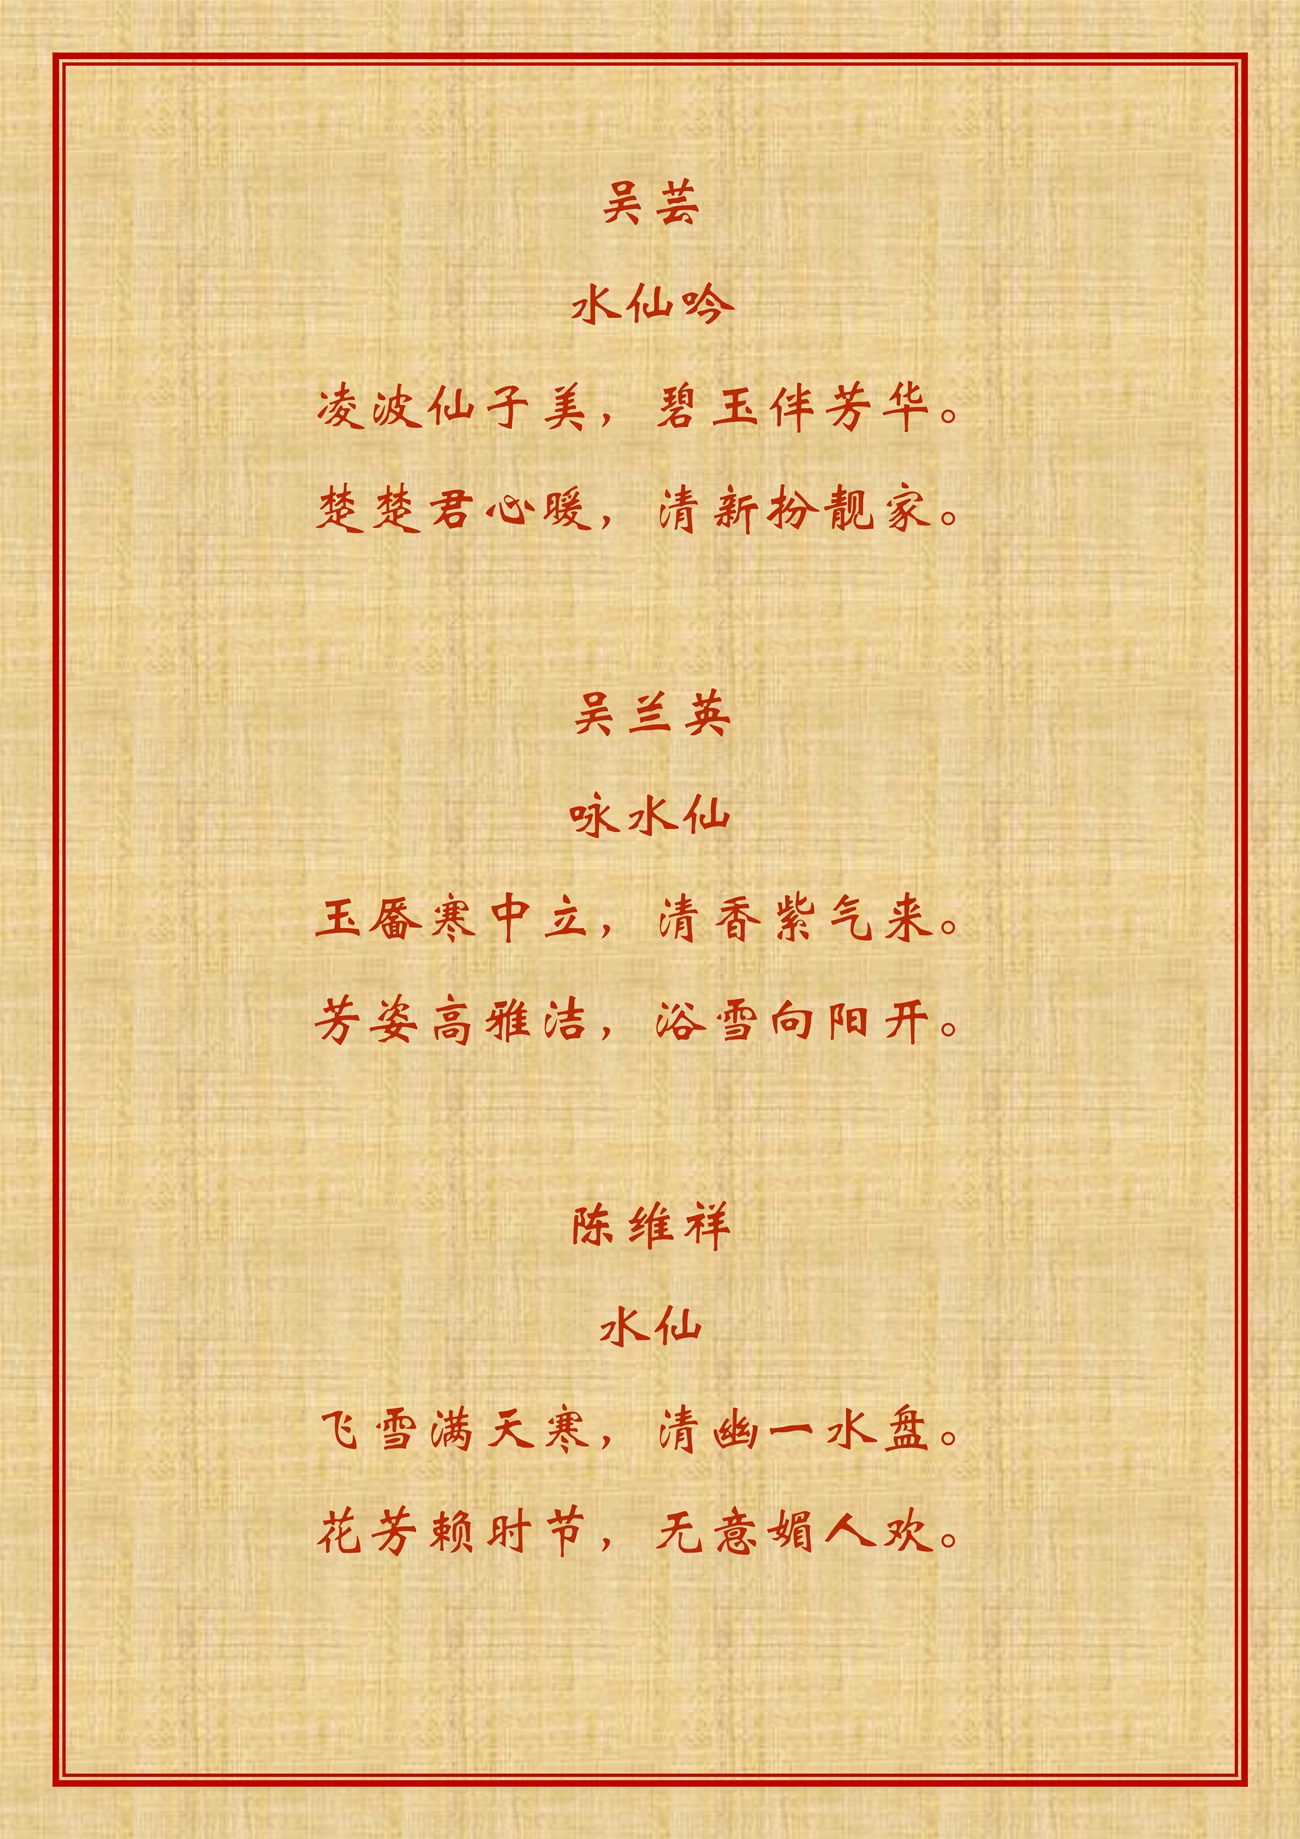 吴芸
水仙吟
凌波仙子美，碧玉伴芳华。
楚楚君心暖，清新扮靓家。
吴兰英
咏水仙
玉靥寒中立，清香紫气来。
芳姿高雅洁，浴雪向阳开。
陈维祥
水仙
飞雪满天寒，清幽一水盘。
花芳赖时节，无意媚人欢。